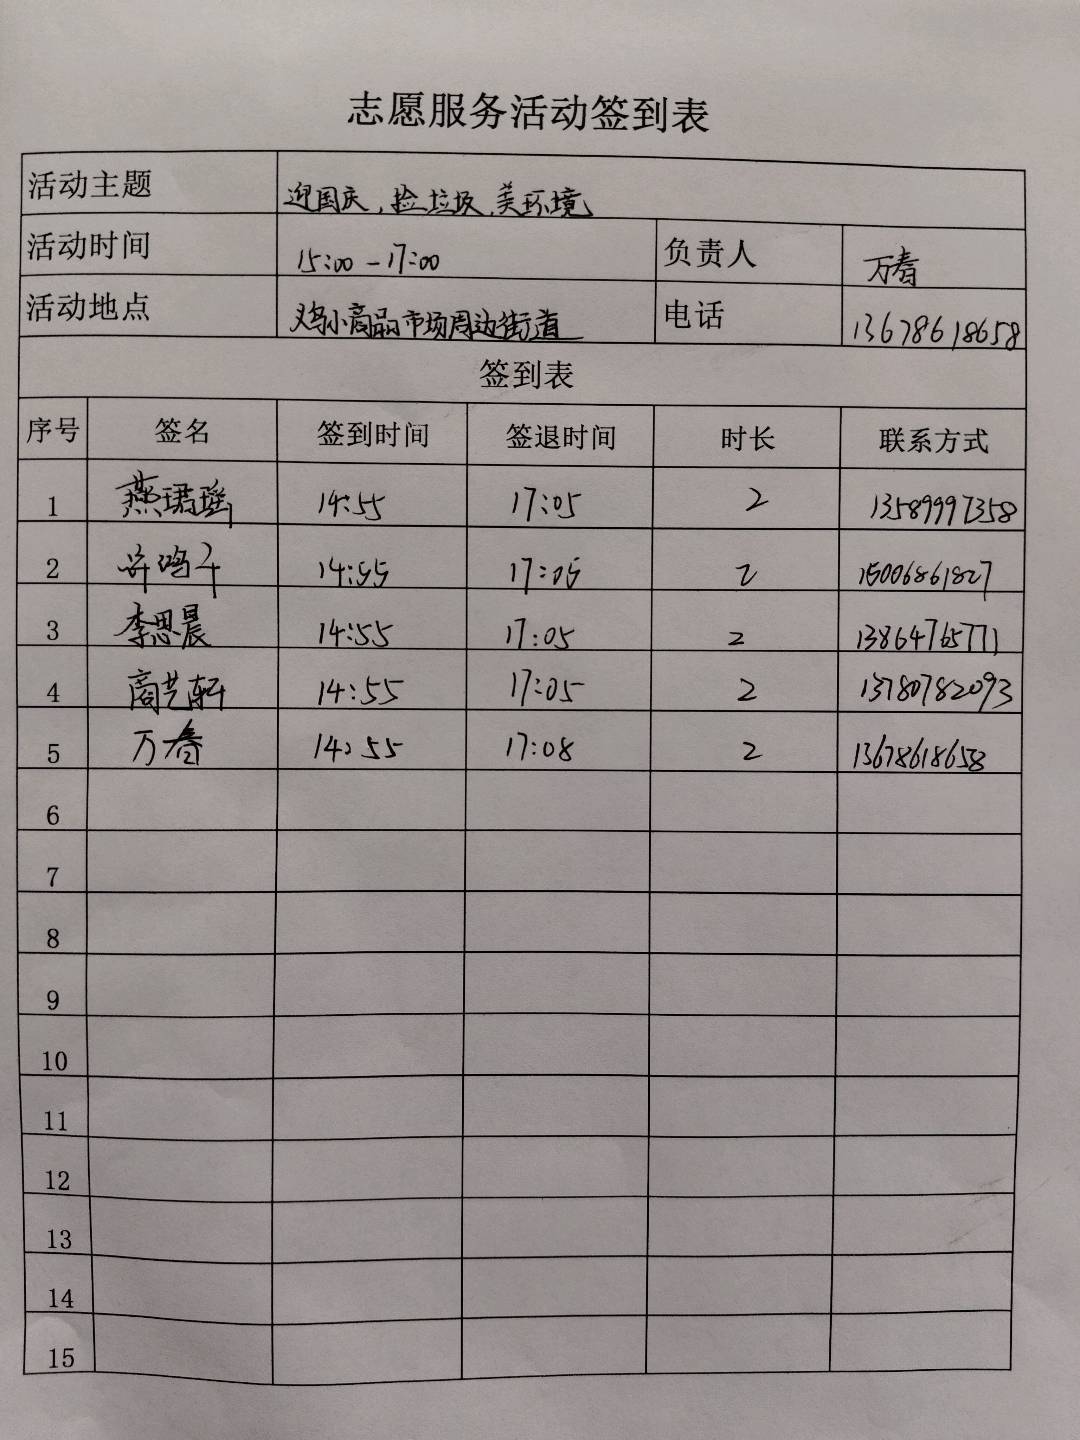 志愿服务活动签到表
活动主题 迎国庆，捡垃圾，美环境
活动时间 15:00-17:00 负责人 万春
活动地点 小商品市场周边街道 电话 13678618658
签到表
序号 签名 签到时间 签退时间 时长 联系方式
1 燕珺瑶 14:55 17:05 2 13589997358
2 14:55 17:05 2 15006861827
3 李思晨 14:55 17:05 2 13864765771
4 商艺轩 14:55 17:05 2 13780782093
5 万春 14:55 17:08 2 13678618658
6
7
8
9
10
11
12
13
14
15